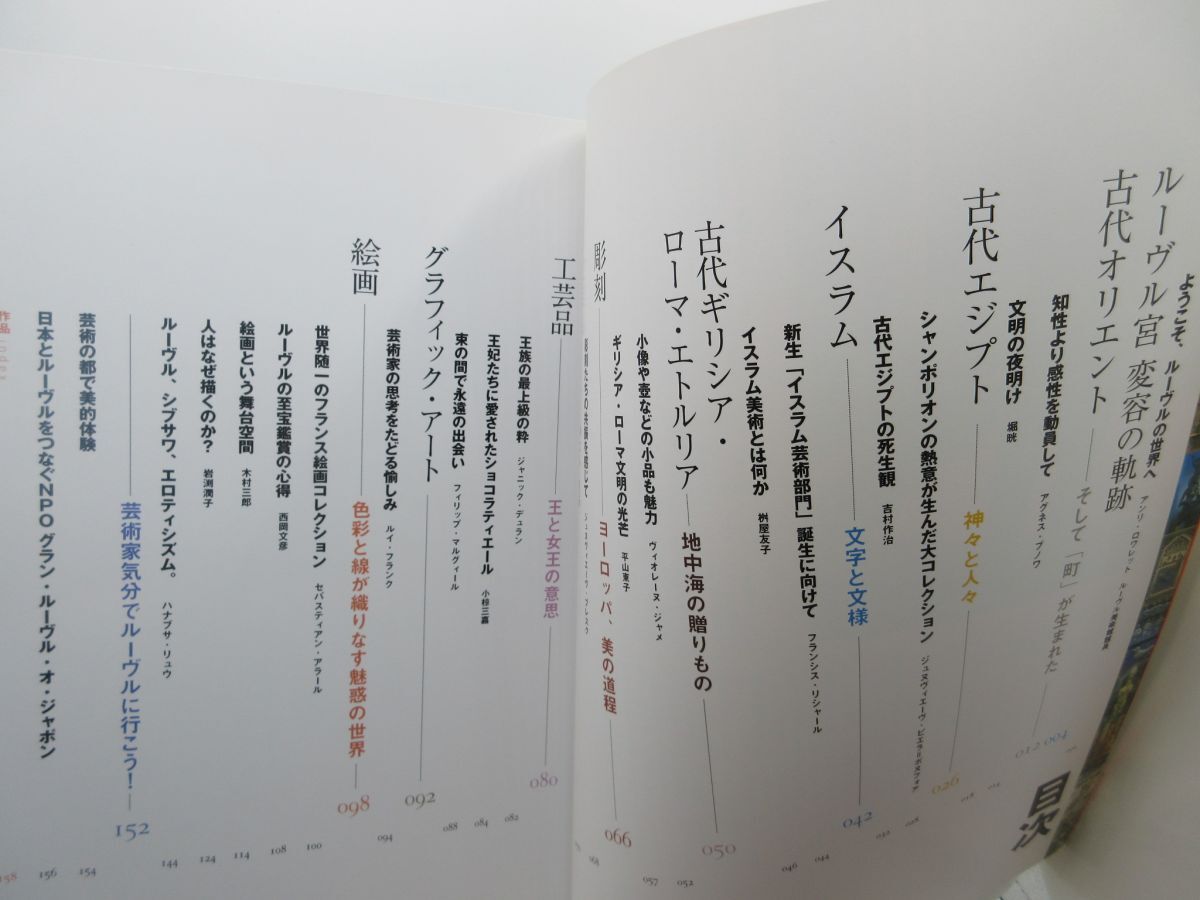 目次
ようこそ、ルーヴルの世界へ アンリ・ロワレット ルーヴル美術館館長
ルーヴル宮 変容の軌跡 004
古代オリエント そして「町」が生まれた 012
知性より感性を動員して アグネス・ブノワ
文明の夜明け 堀晄
古代エジプト 神々と人々 026
シャンポリオンの熱意が生んだ大コレクション ジュヌヴィエーヴ・ピエラ=ボヌフォア 028
古代エジプトの死生観 吉村作治 032
イスラム 文字と文様 042
新生「イスラム芸術部門」誕生に向けて フランシス・リシャール 044
イスラム美術とは何か 桝屋友子 046
古代ギリシア・
ローマ・エトルリア 地中海の贈りもの 050
小像や壺などの小品も魅力 ヴィオレーヌ・ジャメ 052
ギリシア・ローマ文明の光芒 平山東子 057
彫刻 ヨーロッパ、美の道程 066
068
工芸品 王と女王の意思 080
王族の最上級の粋 ジャニック・デュラン 082
王妃たちに愛されたショコラティエール 小椋三嘉 084
束の間で永遠の出会い フィリップ・マルグィール 088
グラフィック・アート 092
芸術家の思考をたどる愉しみ ルイ・フランク 094
絵画 色彩と線が織りなす魅惑の世界 098
世界随一のフランス絵画コレクション セバスティアン・アラール 100
ルーヴルの至宝鑑賞の心得 西岡文彦 108
絵画という舞台空間 木村三郎 114
人はなぜ描くのか？ 岩渕潤子 124
ルーヴル、シブサワ、エロティシズム。 ハナブサ・リュウ 144
芸術家気分でルーヴルに行こう！ 152
芸術の都で美的体験 154
日本とルーヴルをつなぐNPO グラン・ルーヴル・オ・ジャポン 156
作品 Index 158